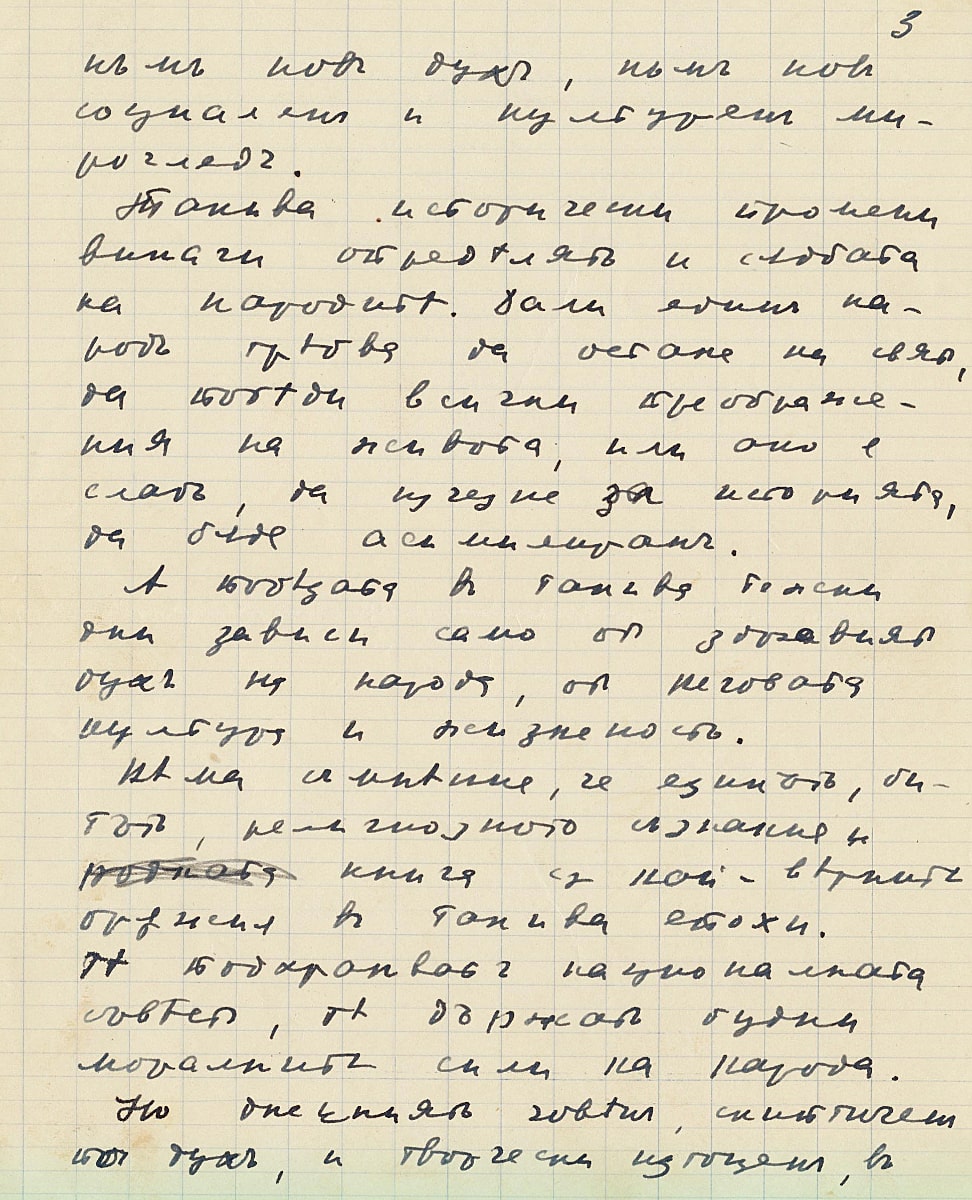 3
къмъ новъ духъ, къмъ новъ
социаленъ и културенъ ми-
рогледъ.
Такива исторически промени
винаги опредѣлятъ и сѫдбата
на народитѣ. Дали единъ на-
родъ трѣбва да остане на свѣта,
да победи всички преображе-
ния на живота, или ако е
слабъ, да изчезне за историята,
да бѫде асимилиранъ.
А победата въ такива тежки
дни зависи само отъ здравиятъ
духъ на народа, отъ неговата
култура и жизненость.
Нѣма съмнѣние, че езикътъ, би-
тътъ, религиозното съзнание и
книга сѫ най-вѣрнитѣ
орѫжия въ такива епохи.
Тѣ подхранватъ националната
совѣсть, тѣ държатъ будни
моралнитѣ сили на народа.
Но днешниятъ човѣкъ, скептиченъ
по духъ, и творчески изтощенъ, въ